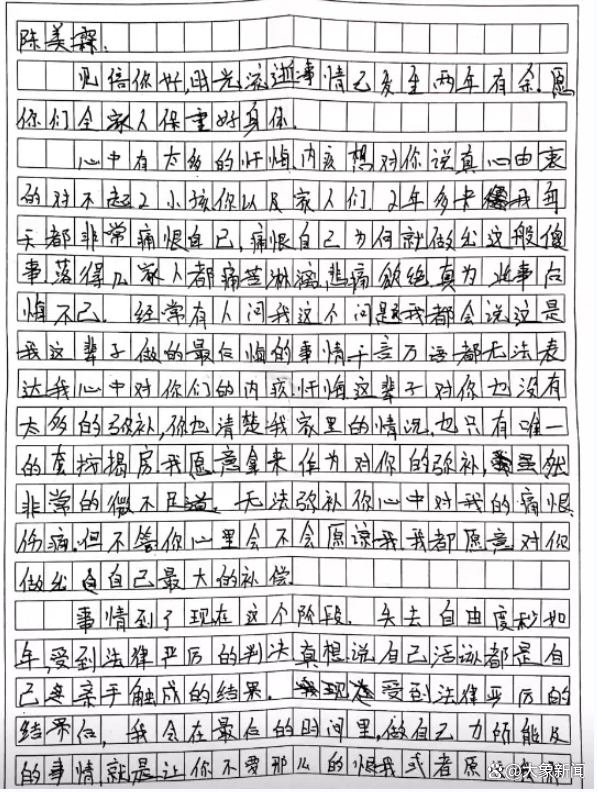 陈美霖,
见信你好,时光流逝事情已发至两年有余.愿
你们全家人保重好身体.
心中有太多的忏悔内疚想对你说真心由衷
的对不起2小孩你以及家人们.2年多来我每
天都非常痛恨自己,痛恨自己为何就做出这般傻
事.落得几家人都痛苦淋漓,悲痛欲绝.真为此事后
悔不已. 经常有人问我这个问题我都会说这是
我这辈子做的最后悔的事情千言万语都无法表
达我心中对你们的内疚忏悔这辈子对你也没有
太多的弥补,你也清楚我家里的情况.也只有唯一
的套按揭房我愿意拿来作为对你的弥补,虽然
非常的微不足道. 无法弥补你心中对我的痛恨,
伤痛.但不管你心里会不会原谅我.我都愿意对你
做出自己最大的补偿.
事情到了现在这个阶段. 失去自由度秒如
年,受到法律严厉的判决真想说自己活该都是自
己亲手触成的结果. 我现在受到法律严厉的
结果后, 我会在最后的时间里,做自己力所能及
的事情,就是让你不要那么的恨我或者原
@大象新闻